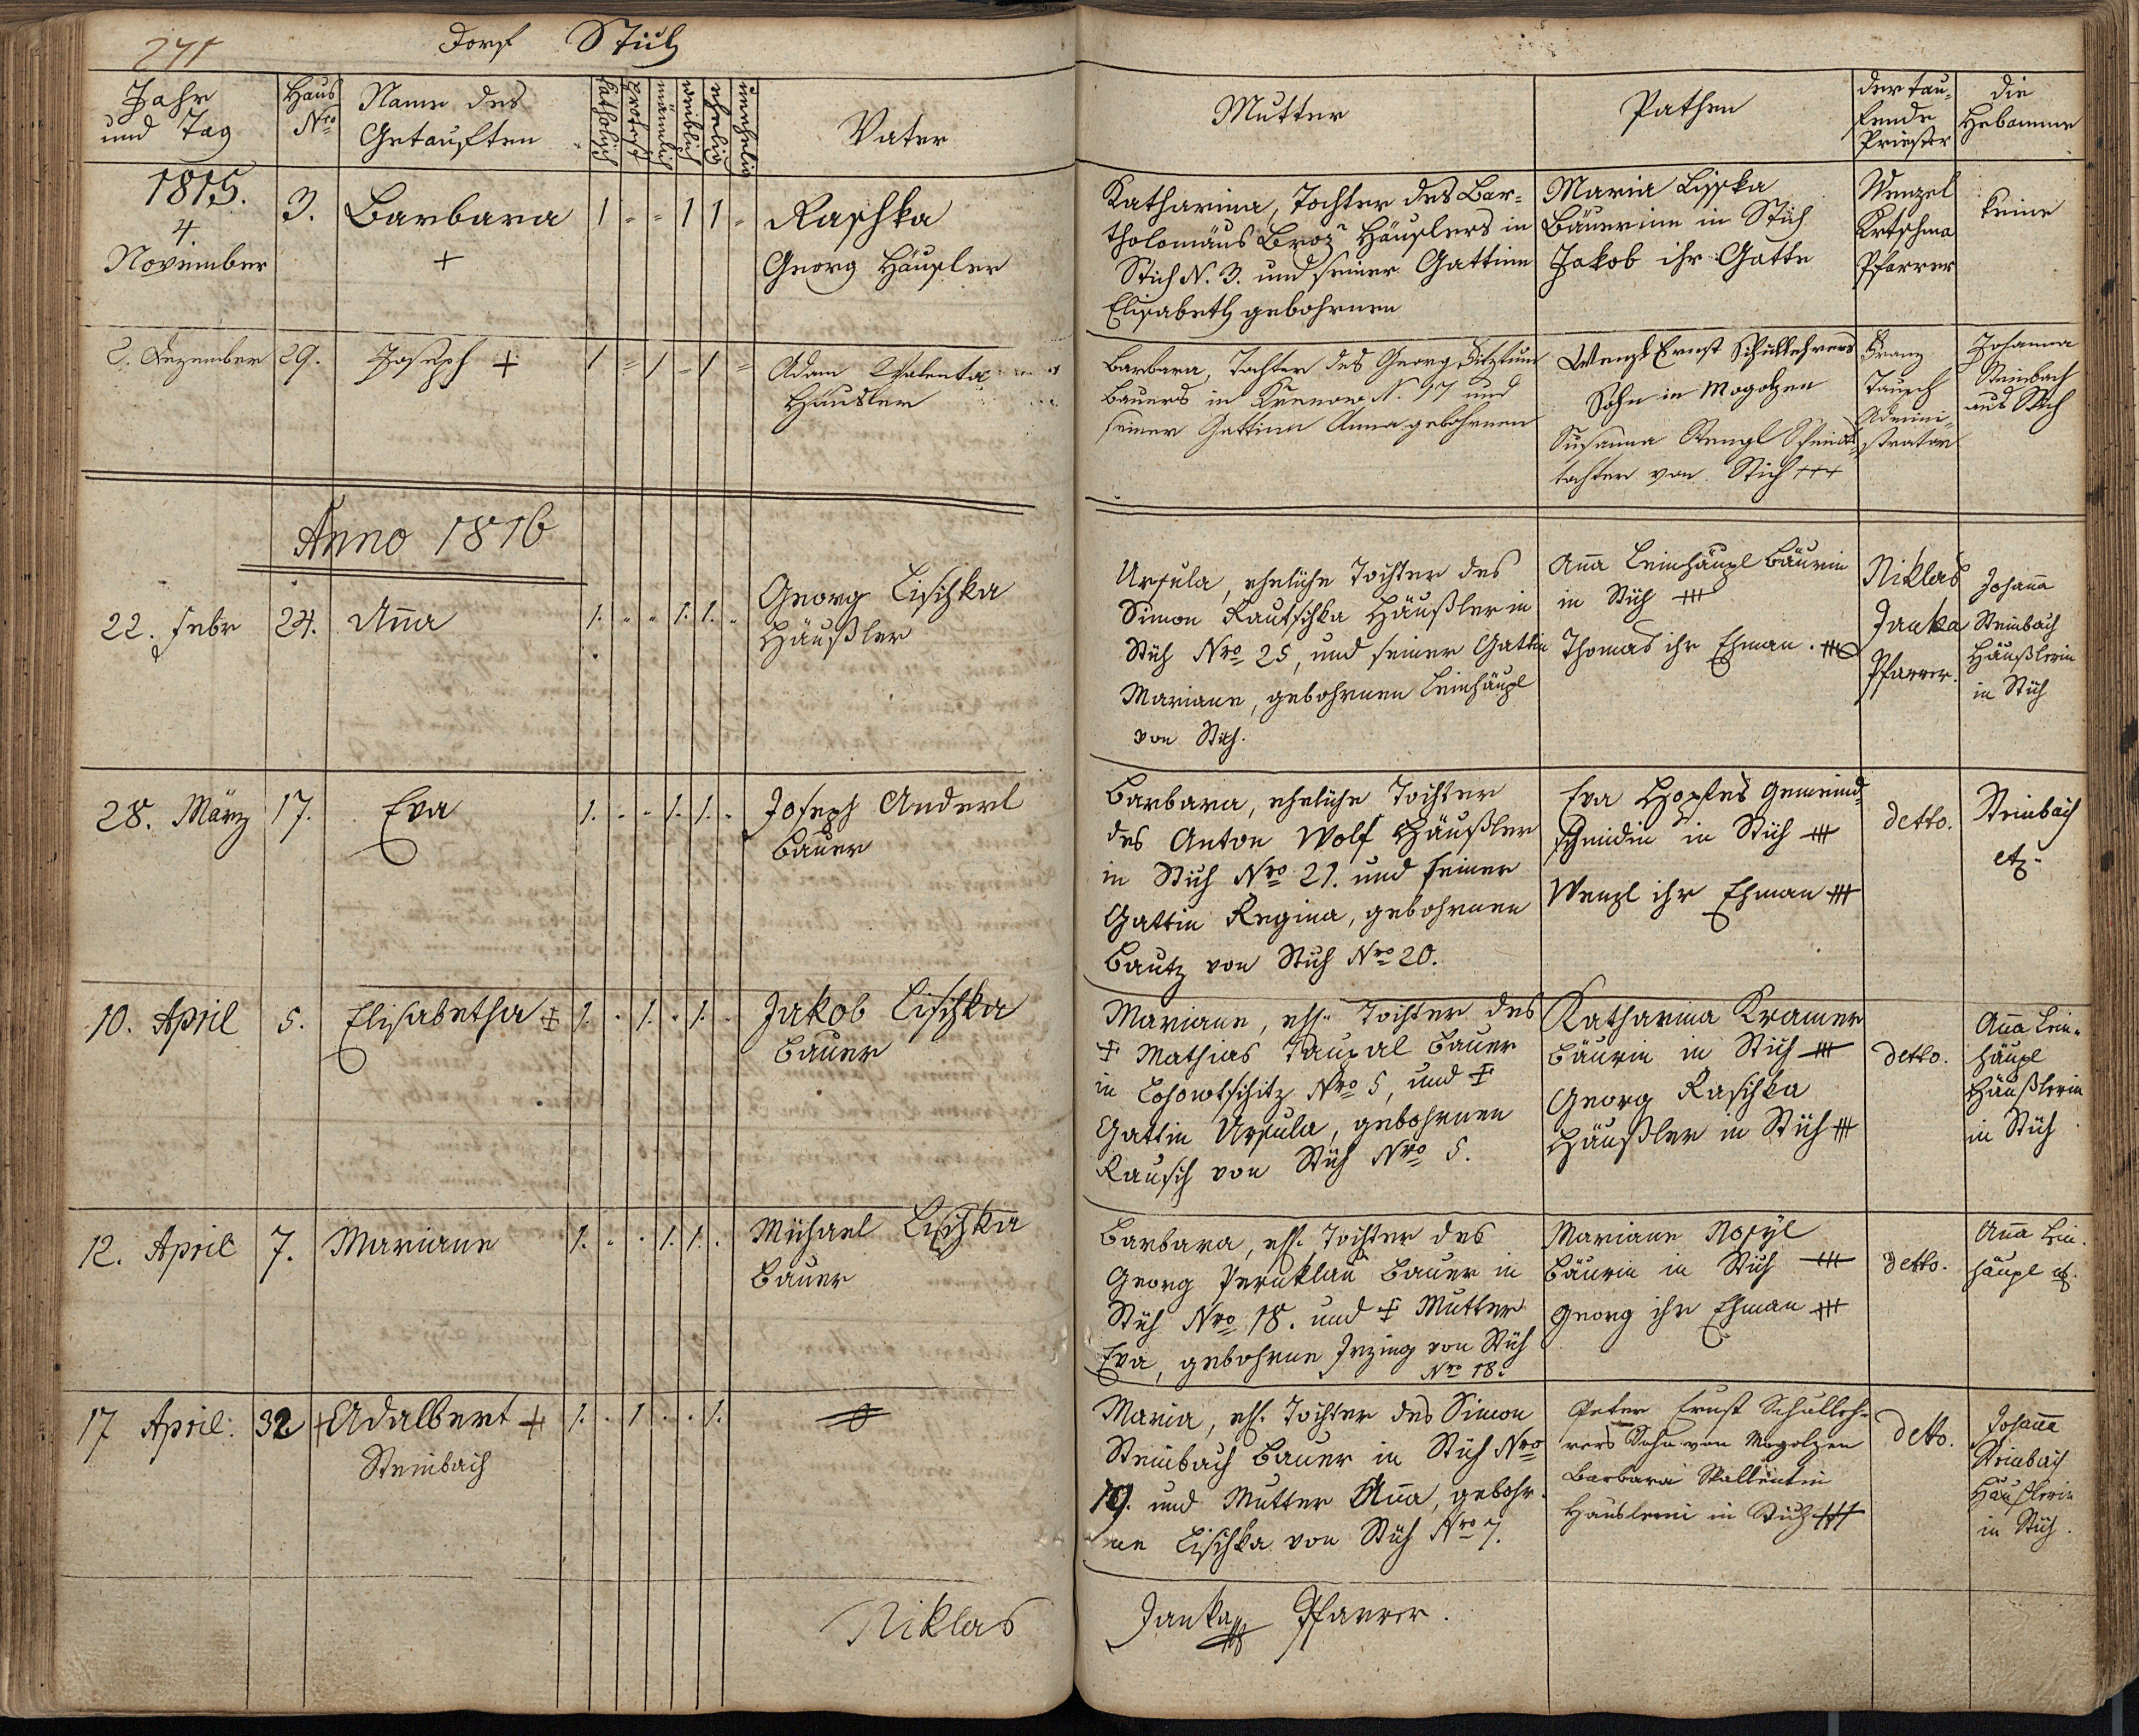 271
Dorf Stich
Jahr
und Tag
Haus
Nro
Name des
Getauften
katholisch
protest
männlich
weiblich
ehelich
unehelich
Vater
Mutter
Pathen
der tau-
fende
Priester
die
Hebamme
1815.
4.
November
3.
Barbara
+
1 " " 1 1 "
Raschka
Georg Häusler
Katharina, Tochter des Bar-
tholomäus Broz Häuslers in
Stich N. 3. und seiner Gattinn
Elisabeth gebohrnen
Maria Lischka
Bäuerinn in Stich
Jakob ihr Gatte
Wenzel
Krtschma
Pfarrer
keine
2. Dezember
29.
Joseph +
1 " 1 " 1 "
Adam Walenta
Häusler
Barbara, Tochter des Georg
Bauers in N. 17 und
seiner Gattinn Anna gebohrnen
Wenzl Ernst Schullehrers
Sohn in Mogolzen
Susanna Stengl
tochter von Stich +++
Franz
Tausch
Admini-
strator
Johanna
Steinbach
aus Stich
Anno 1816
22. Febr
24.
Anna
1. " " 1. 1. "
Georg Lischka
Häußler
Ursula, eheliche Tochter des
Simon Rautschka Häußler in
Stich Nro 25, und seiner Gattin
Mariane, gebohrnen Leinhäupl
von Stich.
Anna Leinhäupl Bäurin
in Stich +++
Thomas ihr Ehman. +++
Niklas
Janka
Pfarrer.
Johanna
Steinbach
Häußlerin
in Stich
28. März
17.
Eva
1. " " 1. 1. "
Joseph Anderl
Bauer
Barbara, eheliche Tochter
des Anton Wolf Häußler
in Stich Nro 21. und seiner
Gattin Regina, gebohrnen
Bautz von Stich Nro 20.
Eva Gemeind-
schmidin in Stich +++
Wenzl ihr Ehman +++
detto.
Steinbach
etz.
10. April
5.
Elisabetha ‡
1. " 1. " 1. "
Jakob Lischka
Bauer
Mariane, ehl. Tochter des
‡ Mathias Taupal Bauer
in Lohowtschitz Nro 5, und ‡
Gattin Ursula, gebohrnen
Rausch von Stich Nro 5.
Katharina Kramer
Bäurin in Stich +++
Georg Raschka
Häußler in Stich +++
detto.
Anna Lein-
häupl
Häußlerin
in Stich
12. April
7.
Mariane
1. " " 1. 1. "
Michael Lischka
Bauer
Barbara, ehl. Tochter des
Georg Peruklau Bauer in
Stich Nro 18. und ‡ Mutter
Eva, gebohrne von Stich
Nro 18.
Mariane
Bäurin in Stich +++
Georg ihr Ehman +++
detto.
Anna Lein-
häupl etz.
17 April.
32
+ Adalbert +
Steinbach
1. " 1 " " 1.
Maria, ehl. Tochter des Simon
Steinbach Bauer in Stich Nro
19. und Mutter Anna, gebohr-
ne Lischka von Stich Nro 7.
Peter Ernst Schulleh-
rers Sohn von Mogolzen
Barbara
Häuslerin in Stich +++
detto.
Johanna
Steinbach
Häußlerin
in Stich.
Niklas Janka Pfarrer.